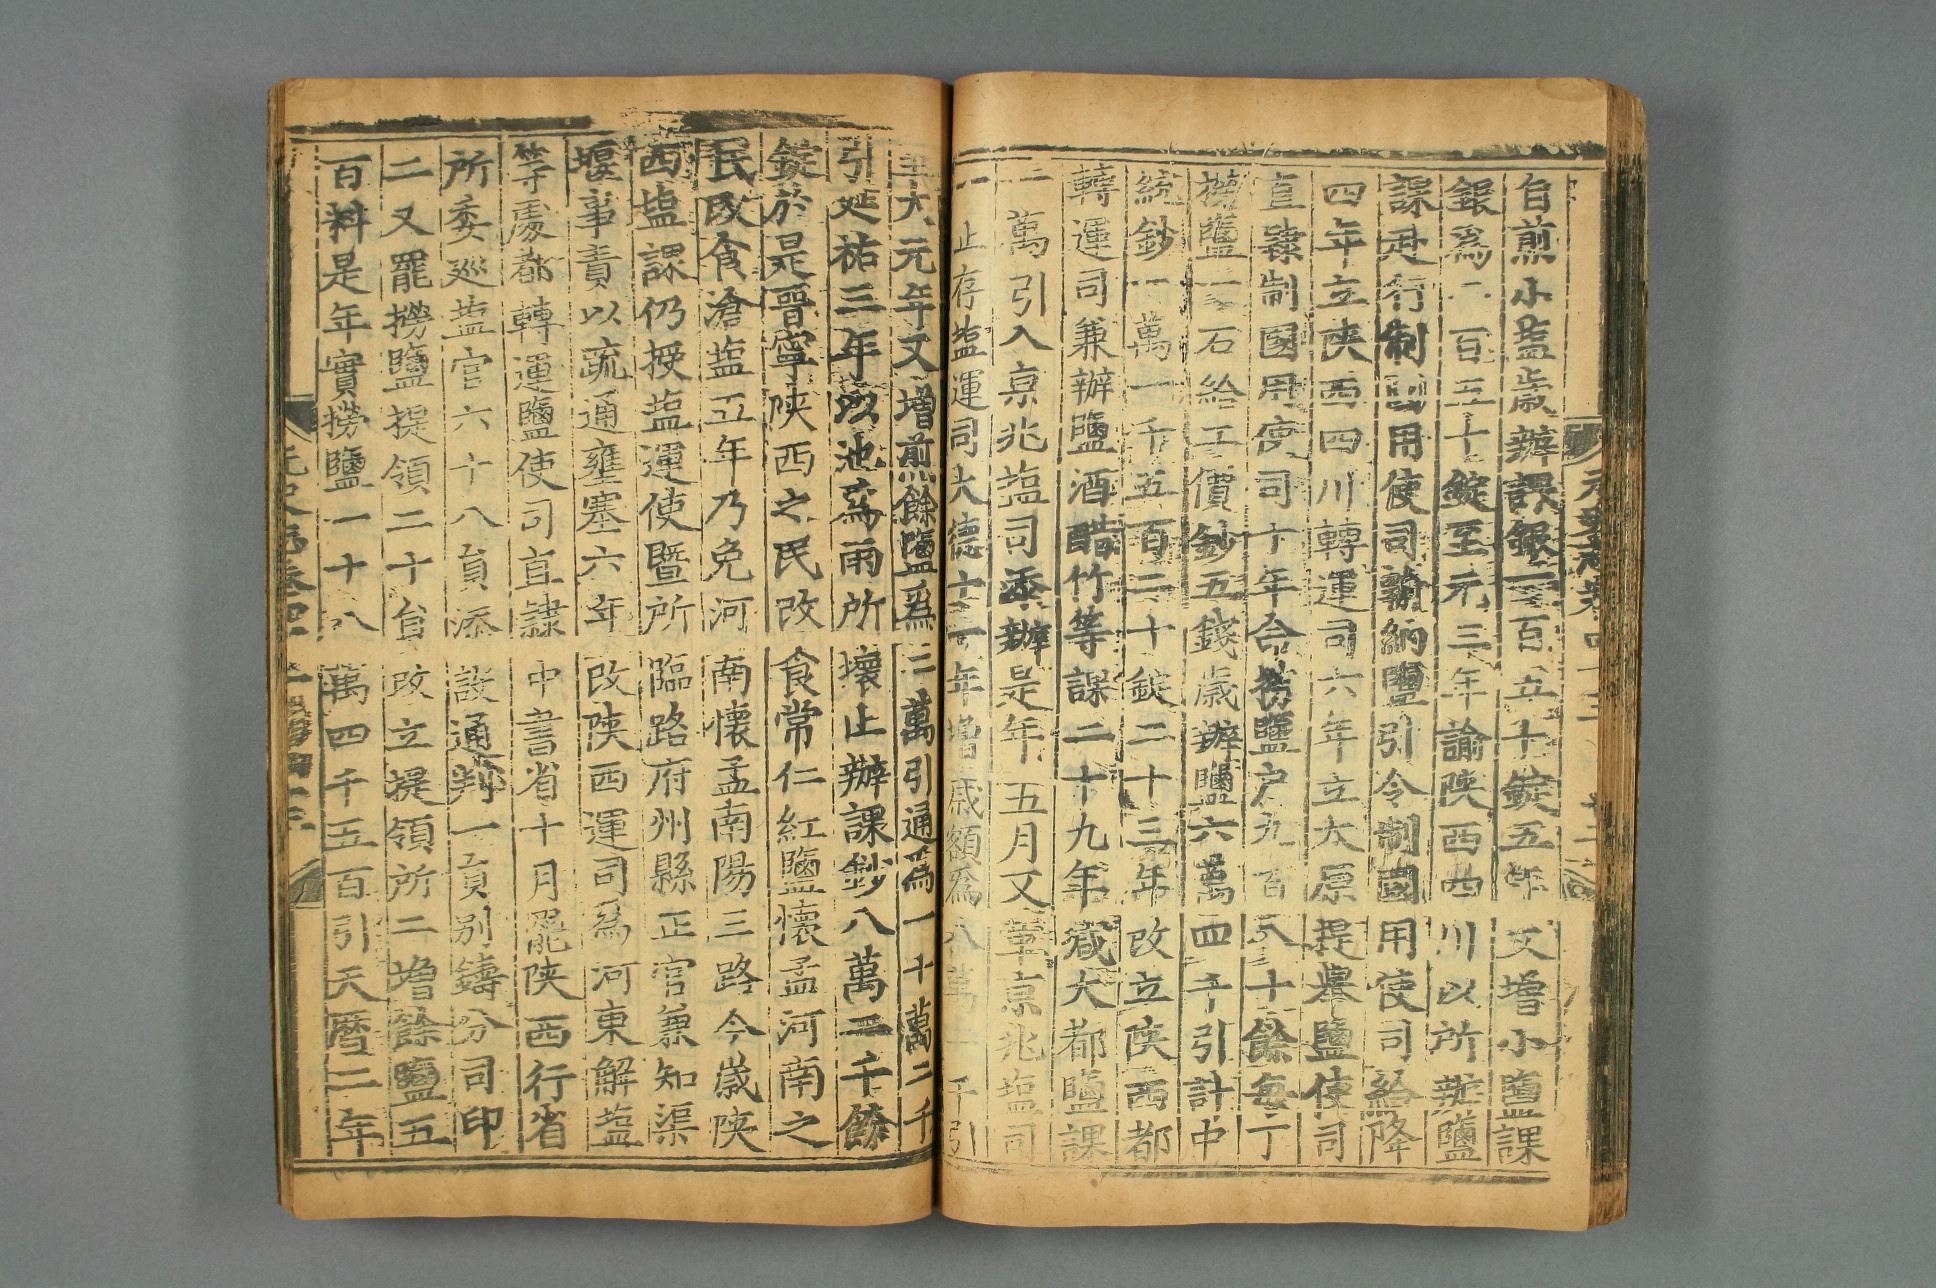 自煎小盐歳辦課銀一百五十錠五年又增小鹽課
銀爲二百五十錠至元三年諭陝西四川以所辦鹽
課赴行制國用使司輸納鹽引令制國用使司給降
四年立陝西四川轉運司六年立太原提舉鹽使司
直隸制國用使司十年命撈鹽户九百八十餘每丁
撈鹽一石給工價鈔五錢歳辦鹽六萬四千引計中
統鈔一萬一千五百二十錠二十三年改立陝西都
轉運司兼辦鹽酒醋竹等課二十九年减大都鹽課
一萬引入亰兆盐司添辦是年五月又革亰兆盐司
一止存盐運司大德十一年增歳額爲八萬二千引
至大元年又增煎餘鹽爲二萬引通爲一十萬二千
引延祐三年以池爲雨所壞止辦課鈔八萬二千餘
錠於是晉寧陝西之民改食常仁紅鹽懷孟河南之
民改食滄盐五年乃免河南懷孟南陽三路今歳陝
西盐課仍授盐運使暨所臨路府州縣正官兼知渠
堰事責以疏通壅塞六年改陝西運司爲河東解盐
等處都轉運鹽使司直隸中書省十月罷陝西行省
所委巡盐官六十八員添設通判一員别鑄分司印
二又罷撈鹽提領二十員改立提領所二增餘鹽五
百料是年實撈鹽一十八萬四千五百引天曆二年